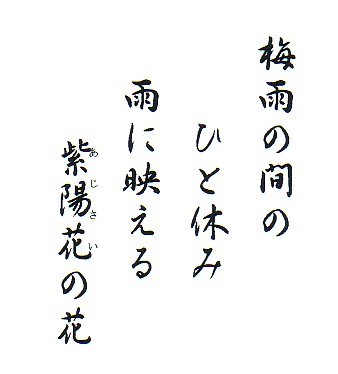 梅雨の間の
ひと休み
雨に映える
紫陽花の花
あじさい